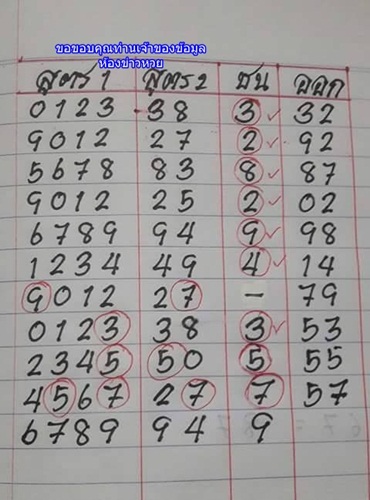 ขอขอบคุณท่านเจ้าของข้อมูล
ห้องข่าวหวย
สูตร 1 สูตร 2 ชน ออก
0123 38 3 ✓ 32
9012 27 2 ✓ 92
5678 83 8 ✓ 87
9012 25 2 ✓ 02
6789 94 9 ✓ 98
1234 49 4 ✓ 14
9012 27 - 79
0123 38 3 ✓ 53
2345 50 5 55
4567 27 7 57
6789 94 9